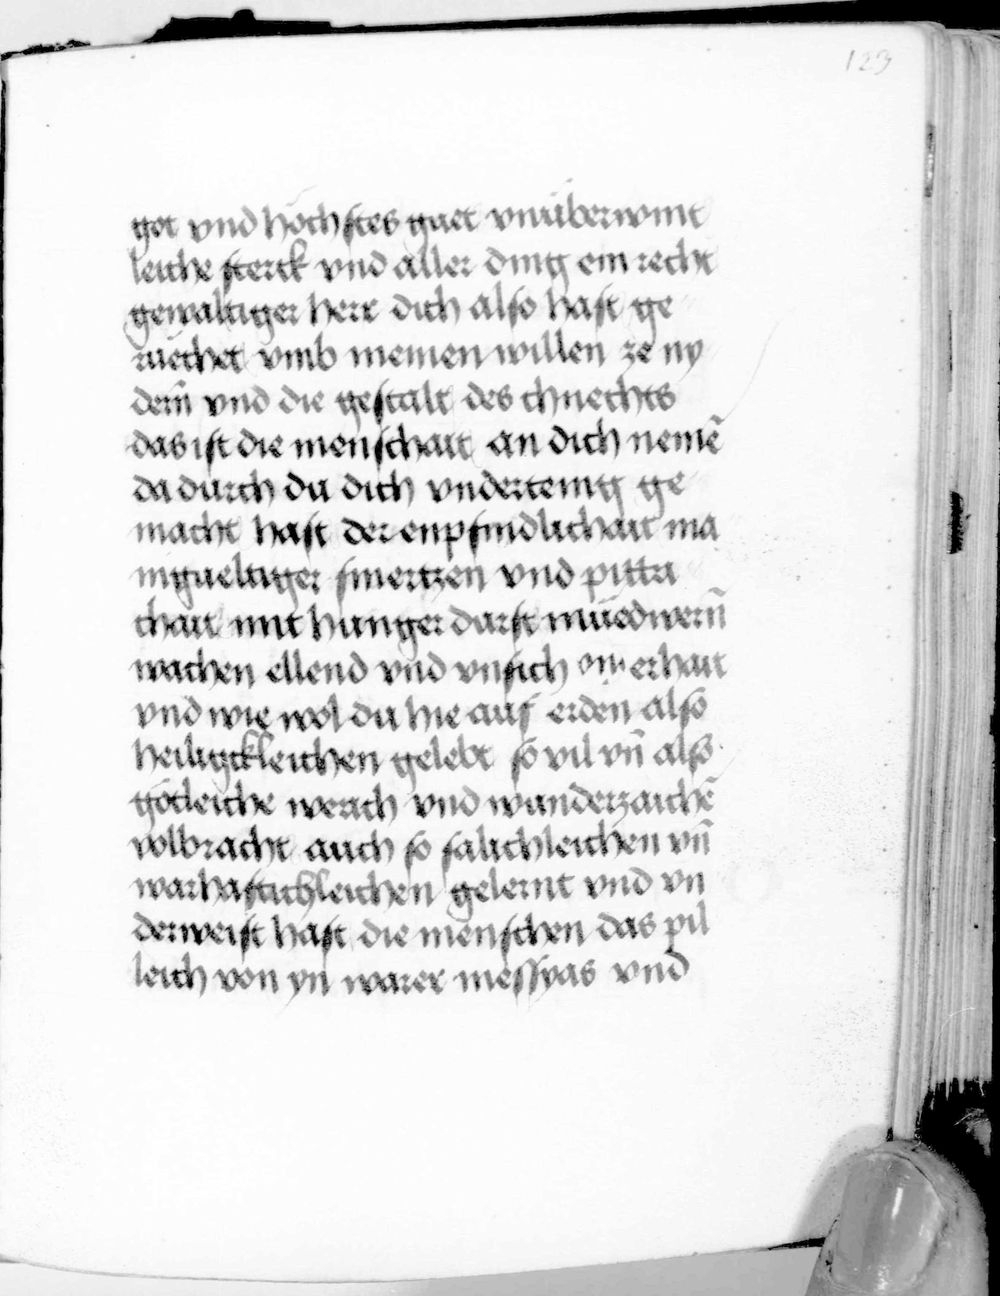 123
got vnd höchstes guet vnüberwint
leiche sterck vnd aller ding ein recht
gewaltiger herr dich also hast ge
rüechet vmb meinen willen ze ny
dern̄ vnd die gestalt des chnechts
das ist die menschait an dich nemē
da durch du dich vndertenig ge
macht hast der enpfindlichait ma
nigueltiger smertzen vnd pittri
chait mit hunger durst müedwern̄
wachen ellend vnd vnsich erhait
vnd wie wol du hie auf erden also
heiligckleichen gelebt so vil vn̄ also
götleiche werch vnd wunderzaichē
volbracht auch so sälichleichen vn̄
warhaftichleichen gelernt vnd vn
derweist hast die menschen das pil
leich von yn warer messyas vnd